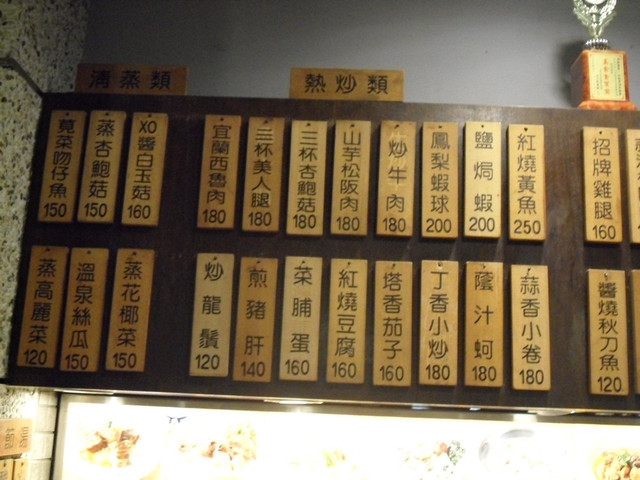 清蒸類
熱炒類
莧菜吻仔魚 150
蒸杏鮑菇 150
XO醬白玉菇 160
宜蘭西魯肉 180
三杯美人腿 180
三杯杏鮑菇 180
山芋松阪肉 180
炒牛肉 180
鳳梨蝦球 200
鹽焗蝦 200
紅燒黃魚 250
招牌雞腿 160
蒸高麗菜 120
溫泉絲瓜 150
蒸花椰菜 150
炒龍鬚 120
煎豬肝 140
菜脯蛋 160
紅燒豆腐 160
塔香茄子 160
丁香小炒 180
蔭汁蚵 180
蒜香小卷 180
醬燒秋刀魚 120